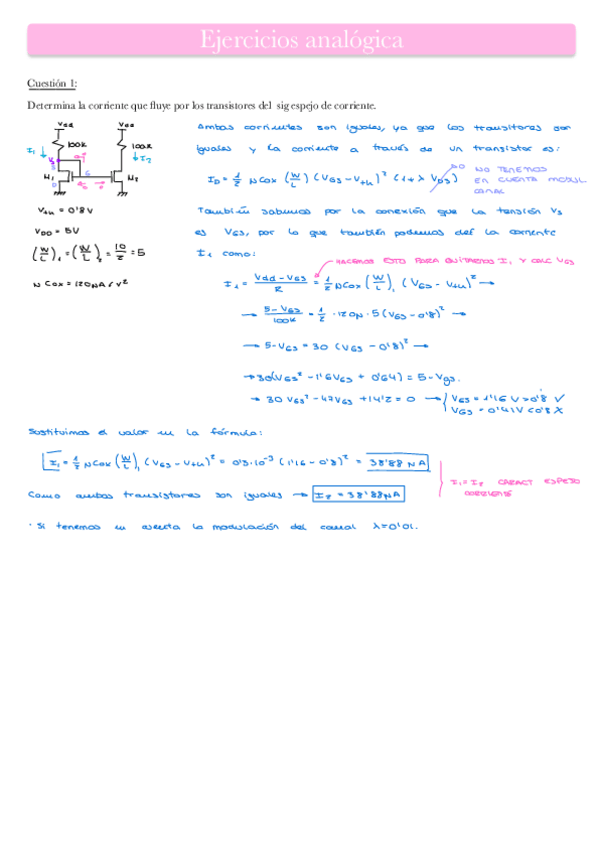 Ejercicios analógica
Cuestión 1:
Determina la corriente que fluye por los transistores del sig espejo de corriente.
Vdd Vdd
I1 100k 100k I2
VS
G
M1 M2
Vth = 0'8V
VDD = 5V
(W/L)1 = (W/L)2 = 10/2 = 5
μCox = 120μA/V²
Ambas corrientes son iguales, ya que los transitores son
iguales y la corriente a través de un transistor es:
ID = 1/2 μCox (W/L) (VGS - Vth)² (1 + λ VDS)
NO TENEMOS
EN CUENTA MODUL
CANAL
También sabemos por la conexión que la tensión VS
es VGS, por lo que también podemos def la corriente
I1 como:
HACEMOS ESTO PARA QUITARNOS I1 Y CALC VGS
I1 = (Vdd - VGS)/R = 1/2 μCox (W/L)1 (VGS - Vth)² →
→ (5 - VGS)/100k = 1/2 · 120μ · 5 (VGS - 0'8)² →
→ 5 - VGS = 30 (VGS - 0'8)² →
→ 30(VGS² - 1'6VGS + 0'64) = 5 - Vgs.
→ 30 VGS² - 47VGS + 14'2 = 0 → { VGS = 1'16 V > 0'8 V
VGS = 0'41V < 0'8 X
Sustituimos el valor en la fórmula:
I1 = 1/2 μCox (W/L)1 (VGS - Vth)² = 0'3·10⁻³ (1'16 - 0'8)² = 38'88 μA
Como ambos transistores son iguales → I2 = 38'88μA
I1 = I2 CARACT ESPEJO
CORRIENTE
· Si tenemos en cuenta la modulación del canal λ=0'01.